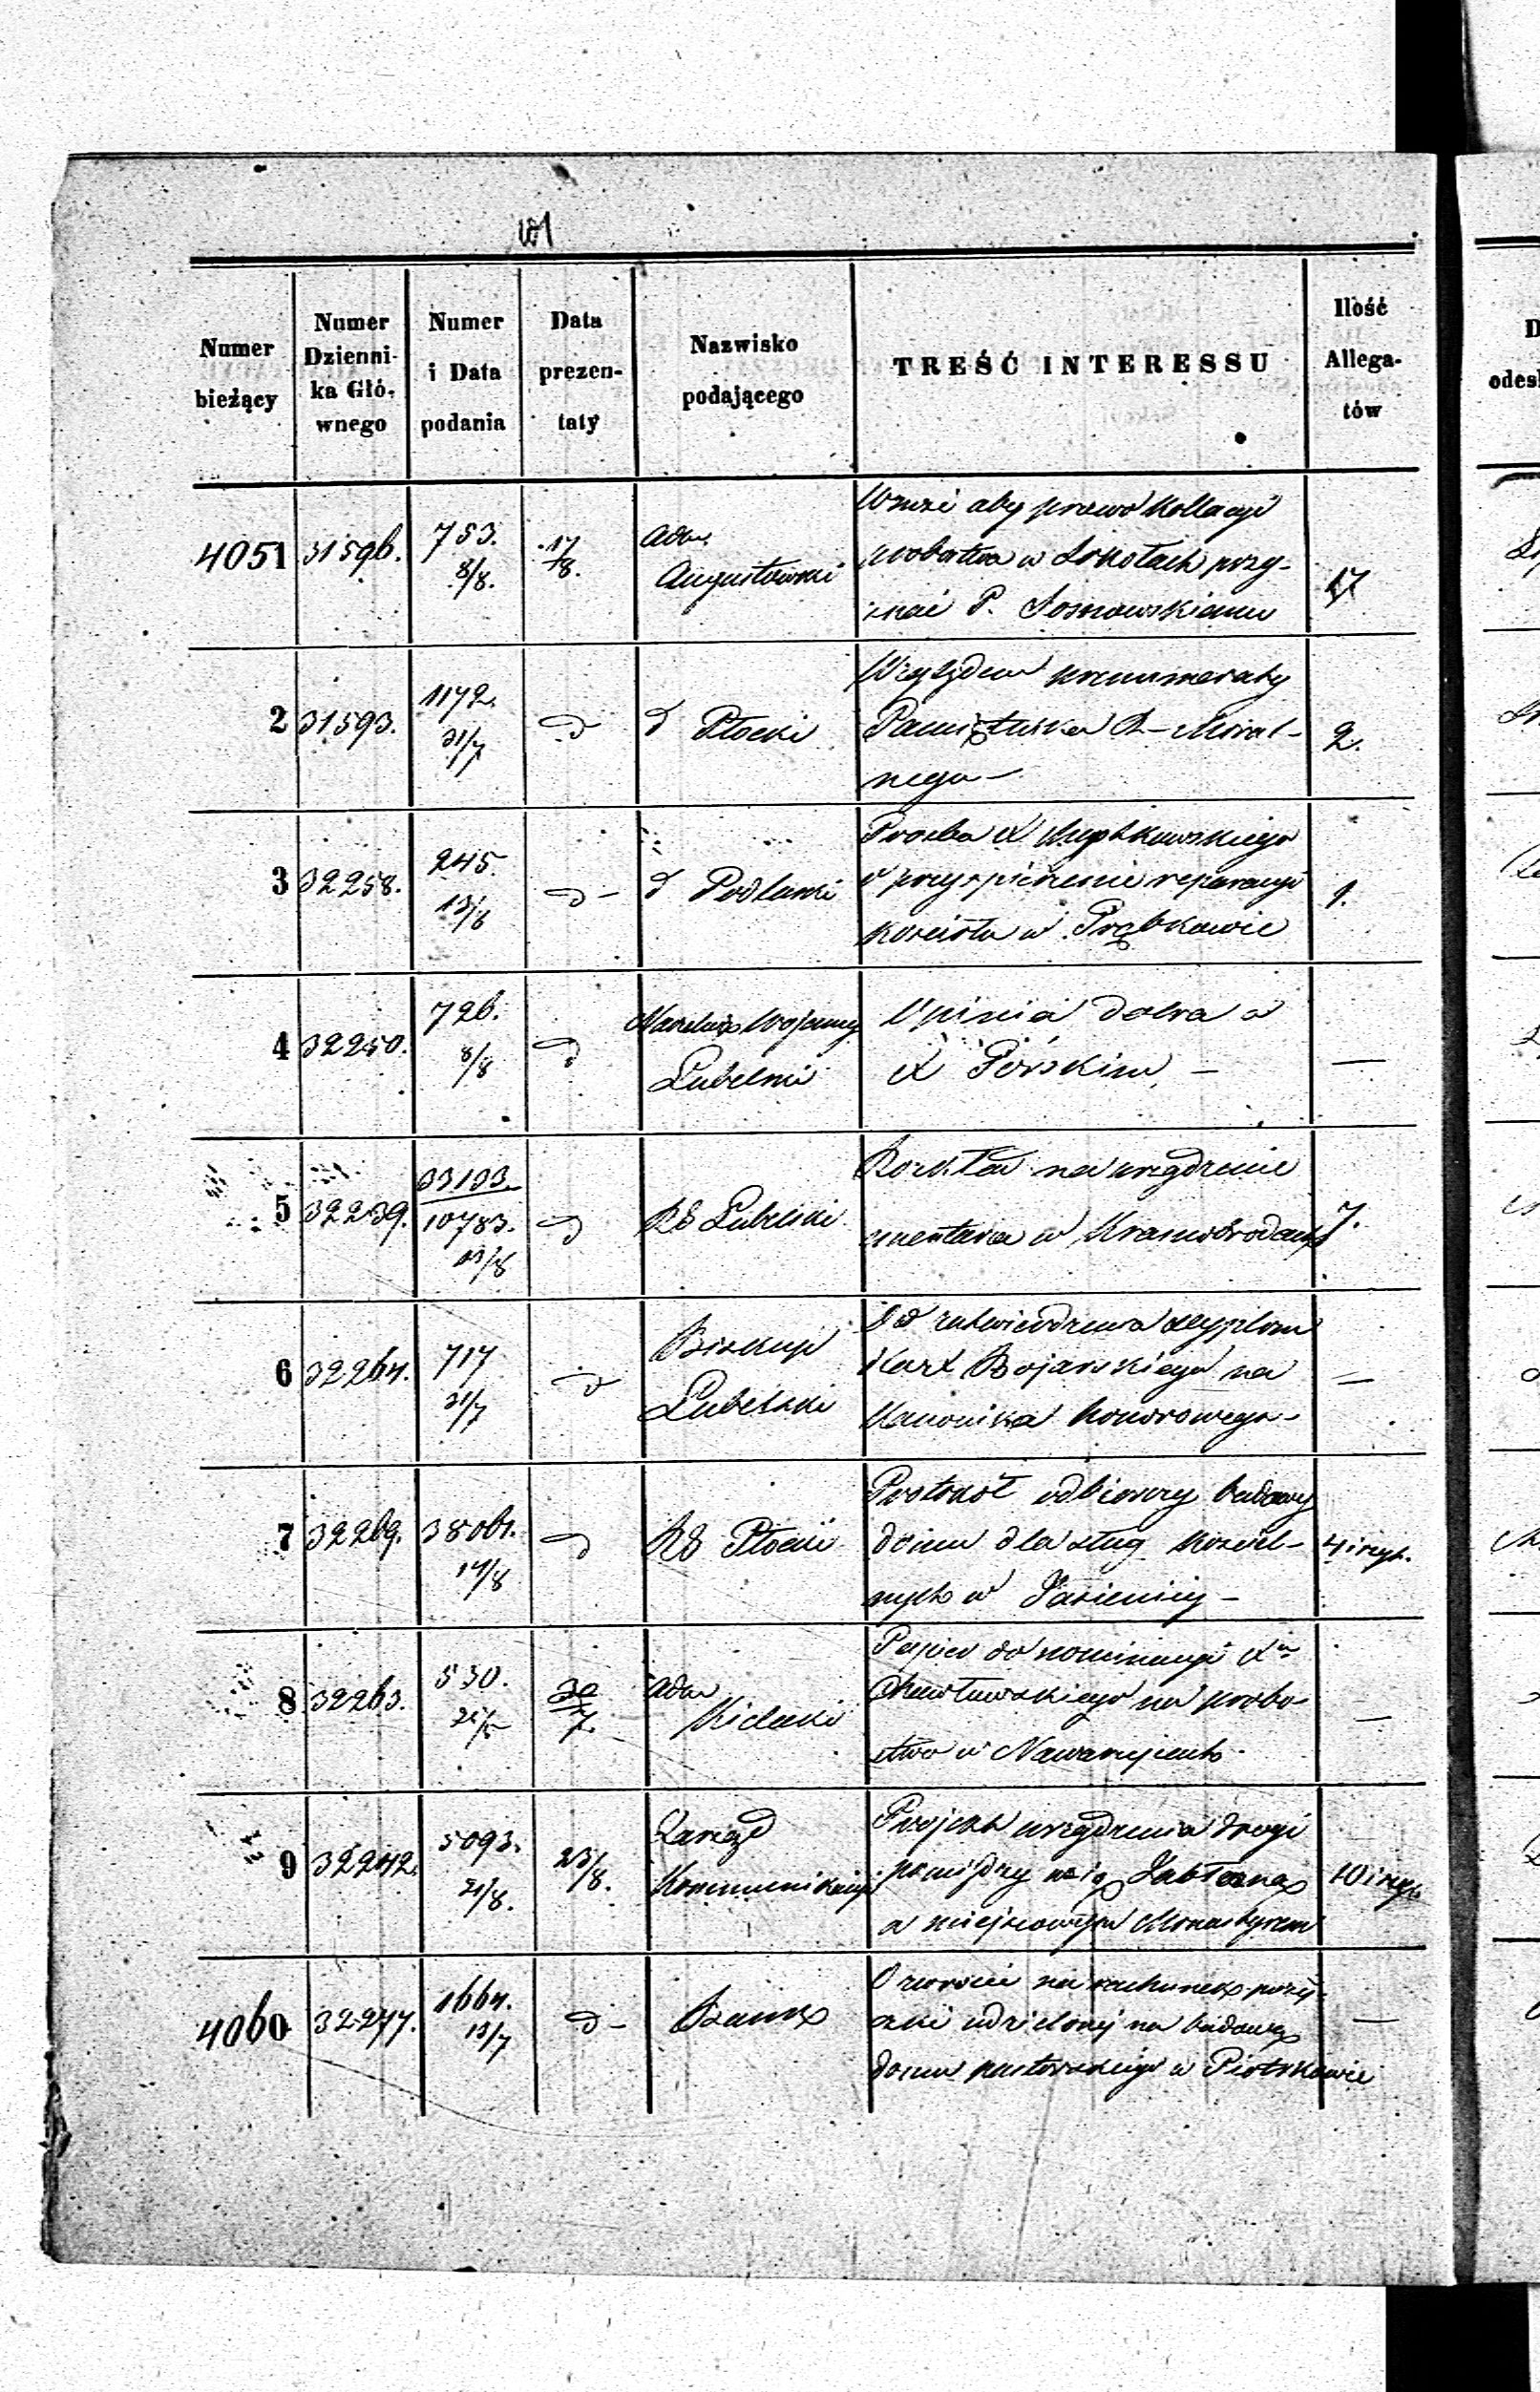 Numer bieżący | Numer Dziennika Głównego | Numer i Data podania | Data prezentaty | Nazwisko podającego | TREŚĆ INTERESSU | Ilość Allegatów
4051 | 31596. | 753. 8/8. | 17/8. | Adm. Augustowski | Wnosi aby prawo Kollacyi
probostwa w Sokołach przy-
znać P. Sosnowskiemu | 17
2 | 31593. | 1172. 31/7 | d | d Płocki | prenumeraty
Pamiętnika R. Moral-
nego | 2.
3 | 32258. | 245. 13/8 | d | d Podlaski | Prośba X
o przyspieszenie reparacyi
kościoła w Prąbkowie | 1.
4 | 32250. | 726. 8/8 | d | Naczelnik Wojenny Lubelski | Opinia dobra o
X Górskim | —
5 | 32239. | 33133. 10783. 13/8 | d | RG Lubelski | Rozkład na urządzenie
cmentarza w Krasnobrodzie | 7.
6 | 32264. | 717 31/7 | d | Biskup Lubelski | Do zatwierdzenia dyplom
Bojarskiego na
Kanonika honorowego | —
7 | 32269. | 38061. 14/8 | d | RG Płocki | Protokół odbiorczy budowy
domu dla sług kościel-
nych w Jasienicy | 4 i rys.
8 | 32263. | 530. | 30/7. | Adm. Kielecki | Papier do nominacyi Xa
na probo-
stwo w | —
9 | 32242. | 5093. 21/8. | 23/8. | Zarząd Kommunikacyi | Projekt urządzenia drogi
pomiędzy wsią Jabłeczną
a miejscowym Monastyrem | 10 i rys.
4060 | 32247. | 1664. 13/7 | d | Bank | O zwrocie na rachunek poży-
czki udzielonej na budowę
domu pastorskiego w Piotrkowie | —